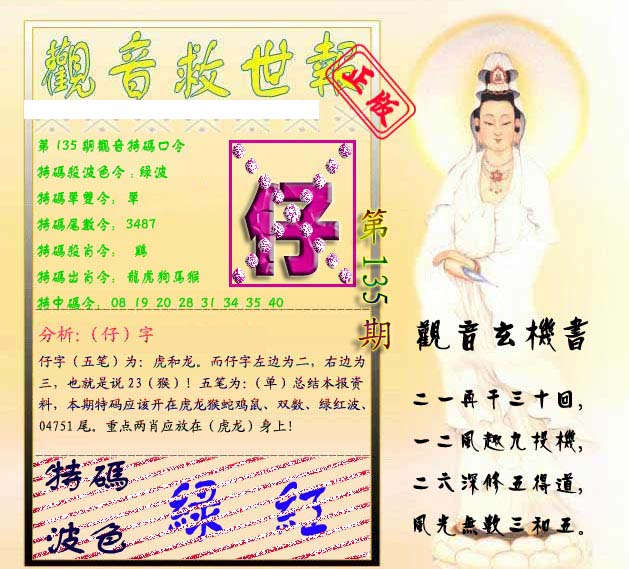 觀音救世報
正版
第135期觀音特碼口令
特碼殺波色令：綠波
特碼單雙令： 單
特碼尾數令： 3487
特碼殺肖令： 鷄
特碼出肖令： 龍虎狗馬猴
特中碼令： 08 19 20 28 31 34 35 40
仔
第135期
分析:（仔）字
仔字（五笔）为：虎和龙。而仔字左边为二，右边为
三，也就是说 23（猴）！五笔为：（单）总结本报资
料，本期特码应该开在虎龙猴蛇鸡鼠、双数、绿红波、
04751 尾。重点两肖应放在（虎龙）身上！
特碼
波色
綠 紅
觀音玄機書
二一再干三十回，
一二風趣九投機，
二六深修五得道，
風光無數三和五。